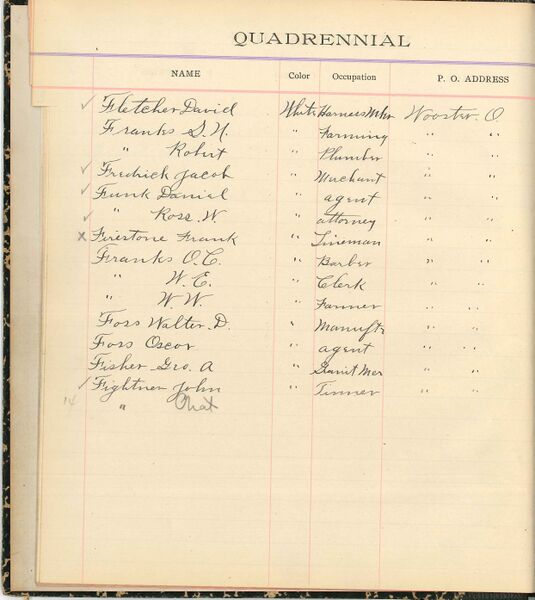 QUADRENNIAL
NAME Color Occupation P. O. ADDRESS
✓ Fletcher David White Harness Mkr Wooster. O.
Franks S. N. " Farming " "
" Robert " Plumber " "
✓ Fredrick Jacob " Merchant " "
✓ Funk Daniel " agent " "
✓ " Ross. W. " attorney " "
x Firestone Frank " Lineman " "
Franks O. C. " Barber " "
" W. E. " Clerk " "
" W. W. " Farmer " "
Foss Walter. D. " Manuftr " "
Foss Oscar " agent " "
Fisher Geo. A " Mer " "
✓ Fightner John " Tinner " "
14 " Chat